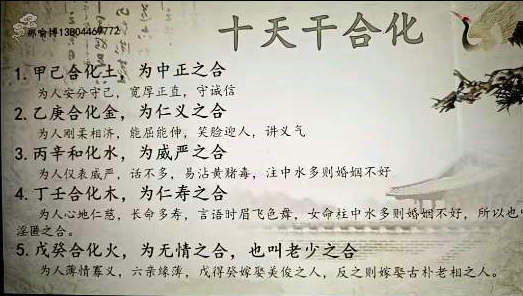 郭喻博13804460772
十天干合化
1. 甲己合化土，为中正之合
为人安分守己，宽厚正直，守诚信
2. 乙庚合化金，为仁义之合
为人刚柔相济，能屈能伸，笑脸迎人，讲义气
3. 丙辛和化水，为威严之合
为人仪表威严，话不多，易沾黄赌毒，注中水多则婚姻不好
4. 丁壬合化木，为仁寿之合
为人心地仁慈，长命多寿，言语时眉飞色舞，女命柱中水多则婚姻不好，所以也
淫匿之合。
5. 戊癸合化火，为无情之合，也叫老少之合
为人薄情寡义，六亲缘薄，戊得癸嫁娶美俊之人，反之则嫁娶古朴老相之人。